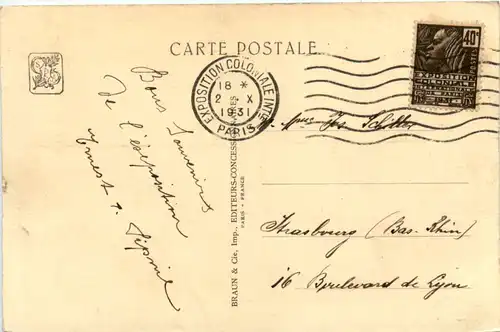 CARTE POSTALE
EXPOSITION COLONIALE INTle
18 *
2 X
1931
PARIS
40c
EXPOSITION
COLONIALE
INTERNATIONALE
PARIS
Bons Souvenirs
de l'exposition
Ernest &
BRAUN & Cie, Imp., EDITEURS-CONCESSIONNAIRES
PARIS - FRANCE
Strasbourg (Bas. Rhin)
16 Boulevard de Lyon